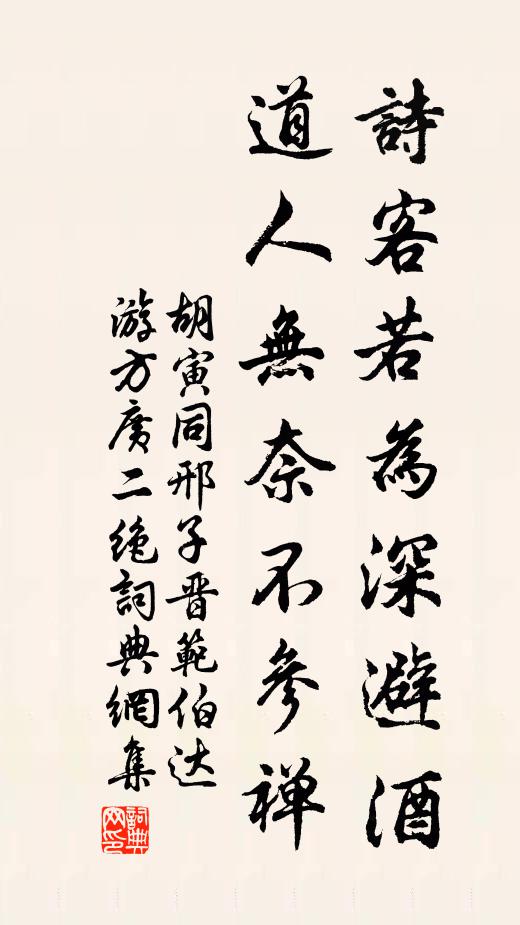 詩客若為深避酒
道人無奈不參禅
胡寅同邢子晋範伯达
游方廣二绝詞典網集
詞典網印